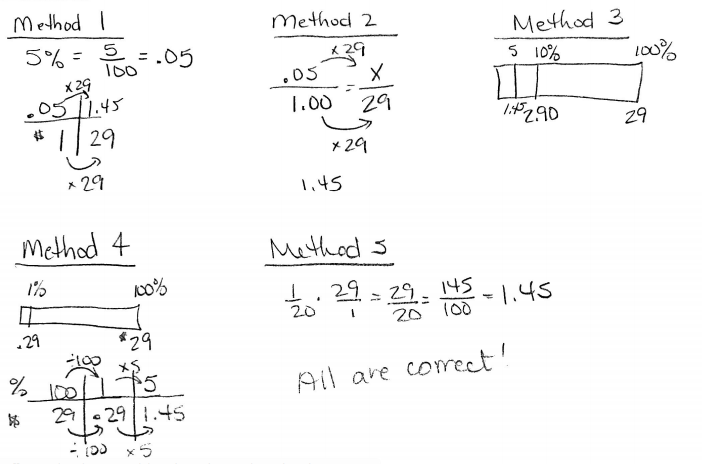 Method 1
5% = 5/100 = .05
×29
.05 | 1.45
$ 1 | 29
×29
Method 2
×29
.05/1.00 = X/29
×29
1.45
Method 3
5 10% 100%
1.45 2.90 29
Method 4
1% 100%
.29 $29
÷100 ×5
% 100 | 1 | 5
$ 29 | .29 | 1.45
÷100 ×5
Method 5
1/20 · 29/1 = 29/20 = 145/100 = 1.45
All are correct!